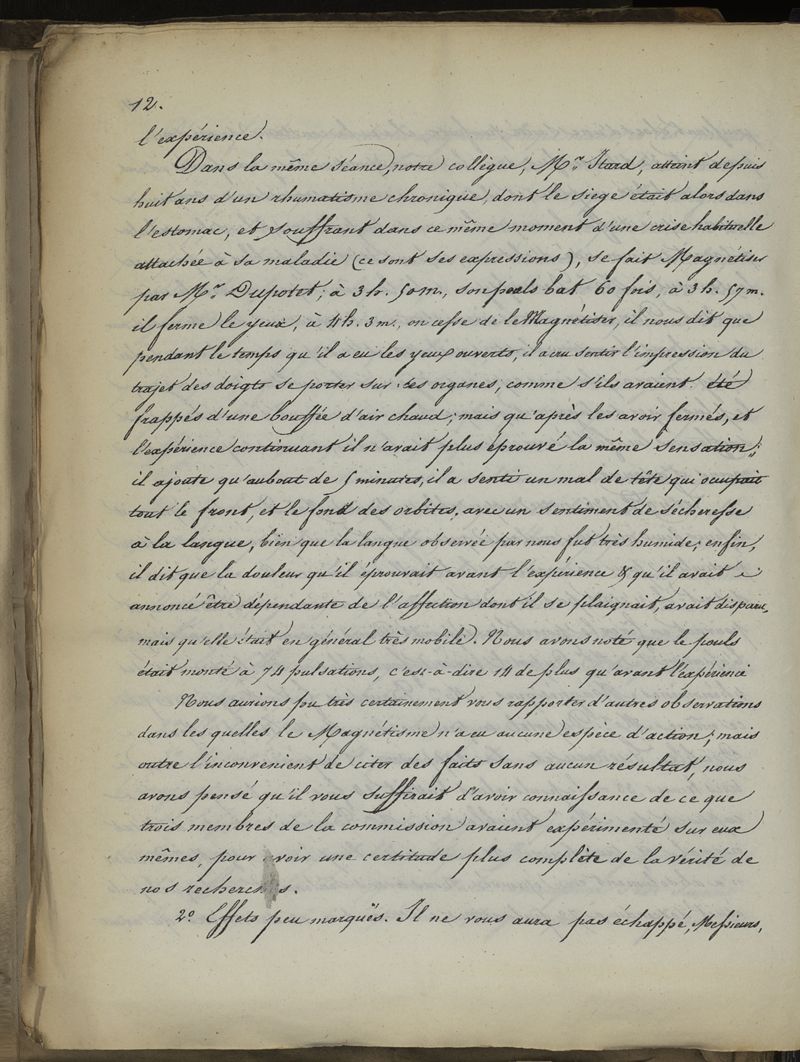 12.
l'expérience.
Dans la même séance, notre collègue, Mr. Itard, atteint depuis
huit ans d'un rhumatisme chronique, dont le siege était alors dans
l'estomac, et souffrant dans ce même moment d'une crise habituelle
attachée à sa maladie (ce sont ses expressions), se fait Magnétiser
par Mr. Dupotet; à 3 h. 50 m., son pouls bat 60 fois, à 3 h. 57 m.
il ferme le yeux, à 4 h. 3 m., on cesse de le Magnétiser, il nous dit que
pendant le temps qu'il a eu les yeux ouverts, il a cru sentir l'impression du
trajet des doigts se porter sur ses organes, comme s'ils avaient été
frappés d'une bouffée d'air chaud; mais qu'après les avoir fermés, et
l'expérience continuant il n'avait plus éprouvé la même sensation;
il ajoute qu'au bout de 5 minutes, il a senti un mal de tête qui occupait
tout le front, et le fond des orbites, avec un sentiment de sécheresse
à la langue, bien que la langue observée par nous fut très humide; enfin,
il dit que la douleur qu'il éprouvait avant l'expérience & qu'il avait
annoncé être dépendante de l'affection dont il se plaignait, avait disparu,
mais qu'elle était en général très mobile. Nous avons noté que le pouls
était monté à 74 pulsations, c'est-à-dire 14 de plus qu'avant l'expérience
Nous aurions pu très certainement vous rapporter d'autres observations
dans les quelles le Magnétisme n'a eu aucune espèce d'action; mais
outre l'inconvenient de citer des faits sans aucun résultat, nous
avons pensé qu'il vous suffirait d'avoir connaissance de ce que
trois membres de la commission avaient expérimenté sur eux
mêmes, pour avoir une certitude plus complète de la vérité de
nos recherches.
2º. Effets peu marqués. Il ne vous aura pas échappé, Messieurs,